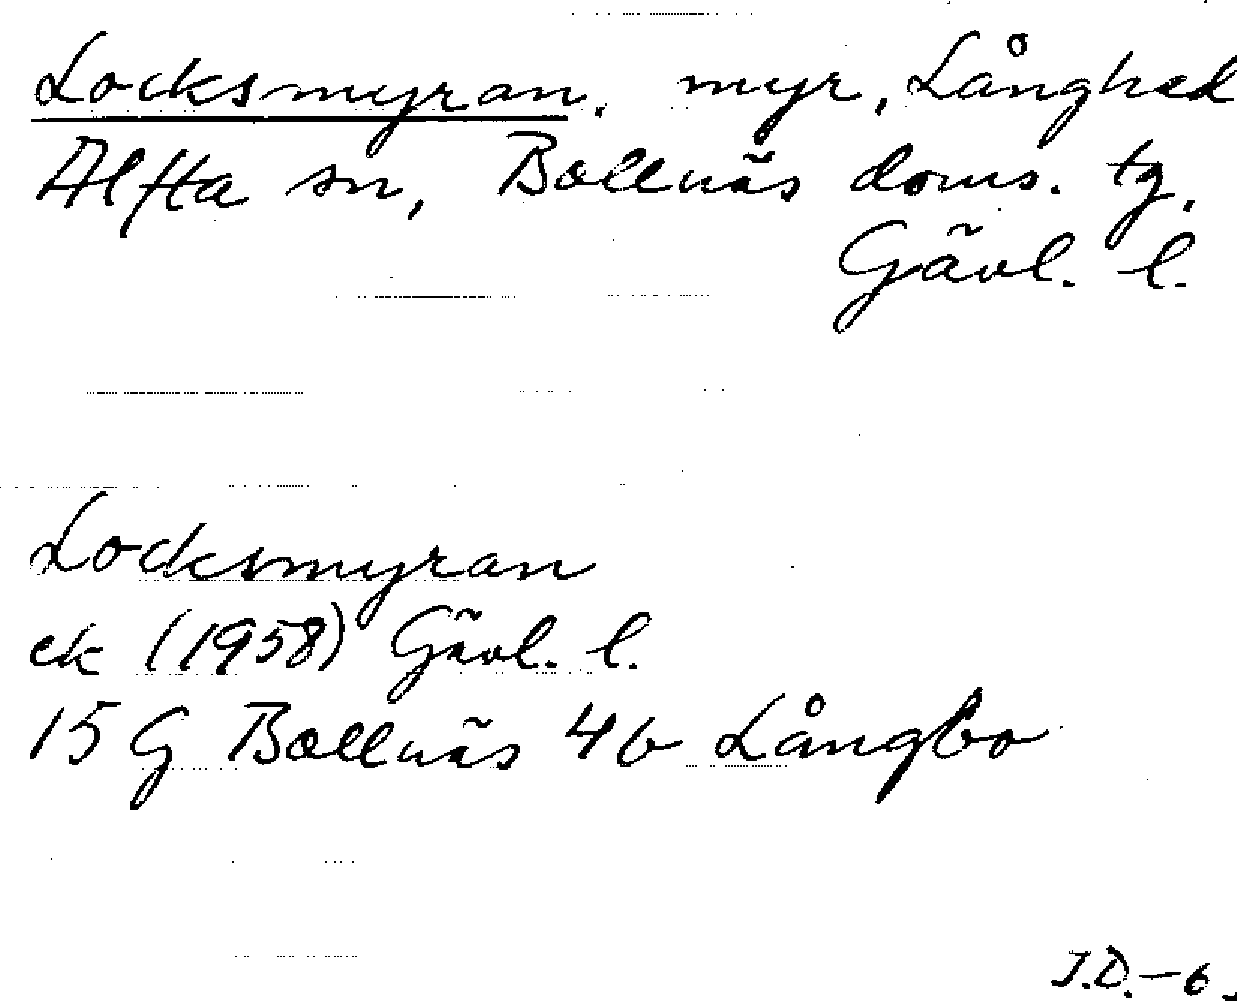 Locksmyran, myr, Långhed
Alfta sn, Bollnäs doms. tg,
Gävl. l.
Locksmyran
ek (1958) Gävl. l.
15 G Bollnäs 4b Långbo
J.D.–6